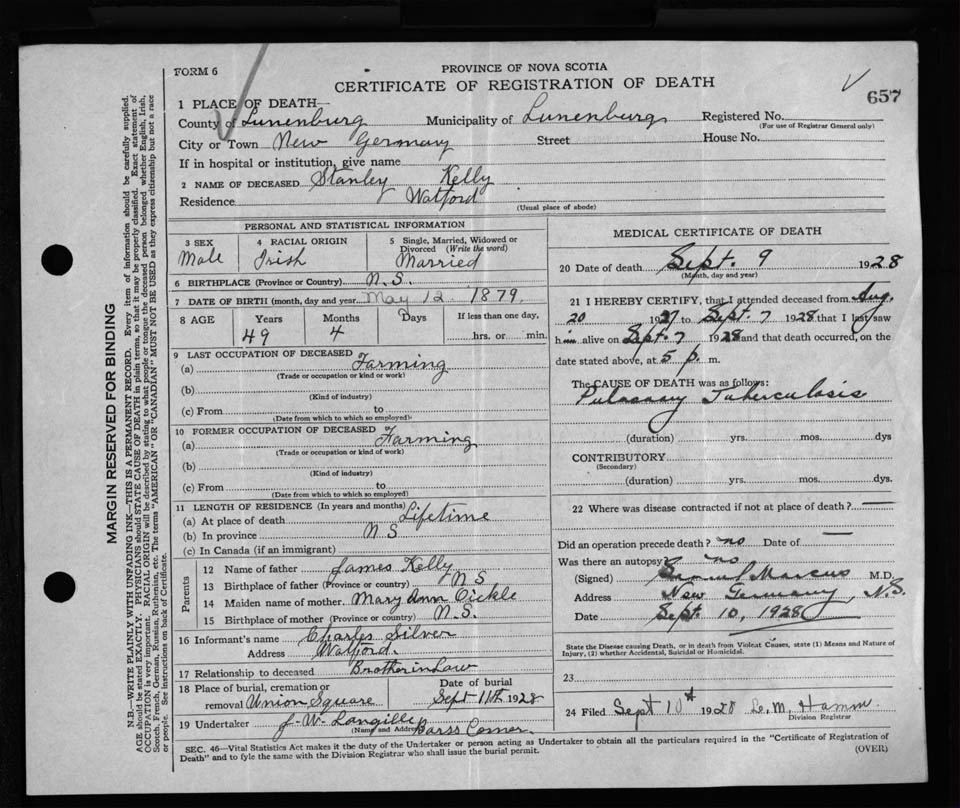 FORM 6
PROVINCE OF NOVA SCOTIA
CERTIFICATE OF REGISTRATION OF DEATH
657
1 PLACE OF DEATH—
County of Lunenburg Municipality of Lunenburg Registered No.
(For use of Registrar General only)
City or Town New Germany Street House No.
If in hospital or institution, give name
2 NAME OF DECEASED Stanley Kelly
Residence Watford
(Usual place of abode)
PERSONAL AND STATISTICAL INFORMATION
3 SEX Male
4 RACIAL ORIGIN Irish
5 Single, Married, Widowed or Divorced (Write the word) Married
6 BIRTHPLACE (Province or Country) N.S.
7 DATE OF BIRTH (month, day and year) May 12 1879
8 AGE Years Months Days If less than one day,
49 4 hrs. or min.
9 LAST OCCUPATION OF DECEASED
(a) Farming
(Trade or occupation or kind or work)
(b)
(Kind of industry)
(c) From to
(Date from which to which so employed)
10 FORMER OCCUPATION OF DECEASED
(a) Farming
(Trade or occupation or kind of work)
(b)
(Kind of industry)
(c) From to
(Date from which to which so employed)
11 LENGTH OF RESIDENCE (In years and months)
(a) At place of death Lifetime
(b) In province N S
(c) In Canada (if an immigrant)
Parents
12 Name of father James Kelly
13 Birthplace of father (Province or country) N S
14 Maiden name of mother Mary Ann Cickle
15 Birthplace of mother (Province or country) N.S.
16 Informant's name Charles Silver
Address Watford.
17 Relationship to deceased Brother in Law
18 Place of burial, cremation or removal Union Square
Date of burial Sept 11th 1928
19 Undertaker J. W. Langille
(Name and Address) Barss Corner
MEDICAL CERTIFICATE OF DEATH
20 Date of death Sept. 9 1928
(Month, day and year)
21 I HEREBY CERTIFY, that I attended deceased from Aug.
20 1927 to Sept. 7 1928 that I last saw
him alive on Sept. 7 1928 and that death occurred, on the
date stated above, at 5 p. m.
The CAUSE OF DEATH was as follows:
Pulmonary Tuberculosis
(duration) yrs. mos. dys
CONTRIBUTORY
(Secondary)
(duration) yrs. mos. dys.
22 Where was disease contracted if not at place of death? —
Did an operation precede death? no Date of —
Was there an autopsy no
(Signed) Samuel Marcus M.D.
Address New Germany, N.S.
Date Sept. 10, 1928
State the Disease causing Death, or in death from Violent Causes, state (1) Means and Nature of
Injury, (2) whether Accidental, Suicidal or Homicidal.
23
24 Filed Sept 10th 1928 L. M. Hamm
Division Registrar
SEC. 46—Vital Statistics Act makes it the duty of the Undertaker or person acting as Undertaker to obtain all the particulars required in the "Certificate of Registration of
Death" and to fyle the same with the Division Registrar who shall issue the burial permit.
(OVER)
MARGIN RESERVED FOR BINDING
N.B.—WRITE PLAINLY WITH UNFADING INK—THIS IS A PERMANENT RECORD. Every item of information should be carefully supplied.
AGE should be stated EXACTLY. PHYSICIANS should STATE CAUSE OF DEATH in plain terms, so that it may be properly classified. Exact statement of
OCCUPATION is very important. RACIAL ORIGIN will be described by stating to what people or tongue the deceased person belonged whether English, Irish,
Scotch, French, German, Russian, Ruthenian, etc. The terms "AMERICAN" OR "CANADIAN" MUST NOT BE USED as they express citizenship but not a race
or people. See instructions on back of Certificate.